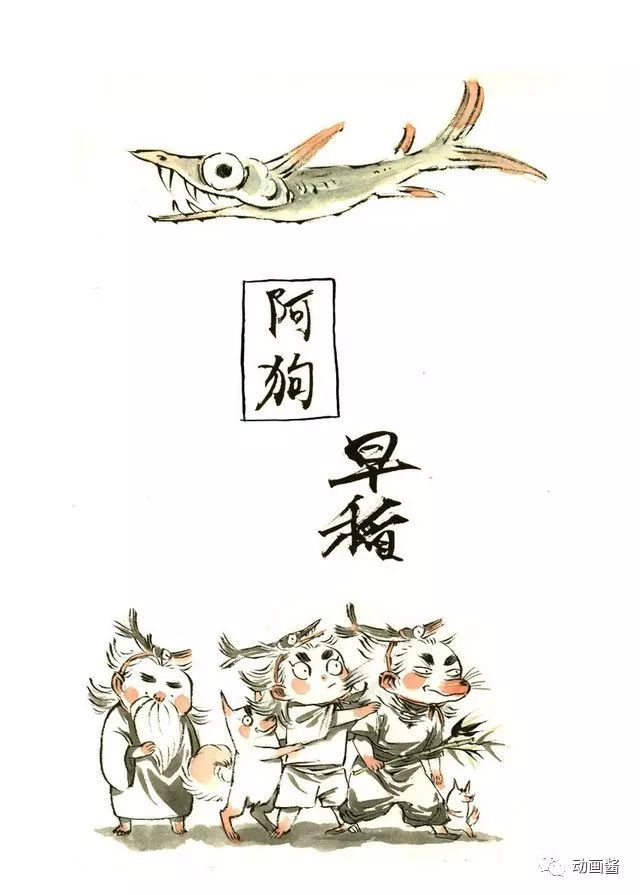 阿
狗
早
稻
动画酱